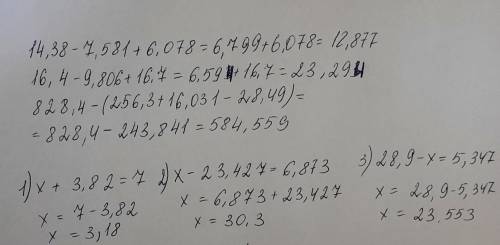 14,38-7,581+6,078=6,799+6,078=12,877
16,4-9,806+16,7=6,594+16,7=23,294
828,4-(256,3+16,031-28,49)=
=828,4-243,841=584,559
1) x + 3,82=7
x = 7-3,82
x = 3,18
2) x-23,427=6,873
x = 6,873+23,427
x = 30,3
3) 28,9-x=5,347
x = 28,9-5,347
x = 23,553